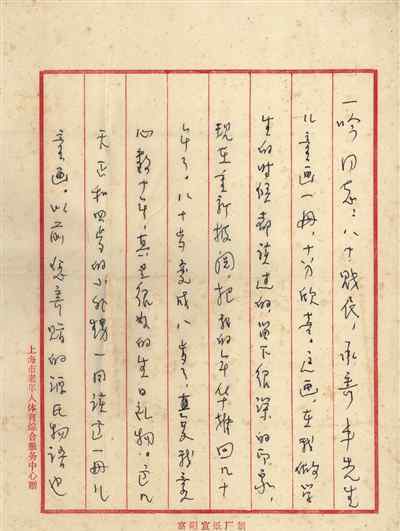 一吟同志：八十贱辰，承寄丰先生
儿童画一册，十分欣喜。这画，在我做学
生的时候都读过的，留下很深的印象，
现在重新披阅，把我的年华推回几十
年了。八十岁变成八岁了，真是我童
心数十年，真是很好的生日礼物。这几
天正和四岁的小外甥一同读这一册儿
童画。以前您寄贻的源氏物语也
上海市老年人体育综合服务中心赠
富阳宣纸厂制